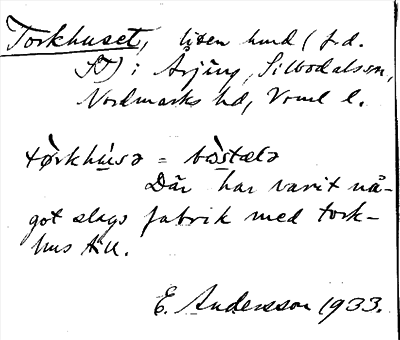 Torkhuset, liten lund (f.d.
ST) i Årjäng, Silbodalssn,
Nordmarks hd, Vrml l.
tòrkhúsə = bòstælə
Där har varit nå-
got slags fabrik med tork-
hus till.
E. Andersson 1933.